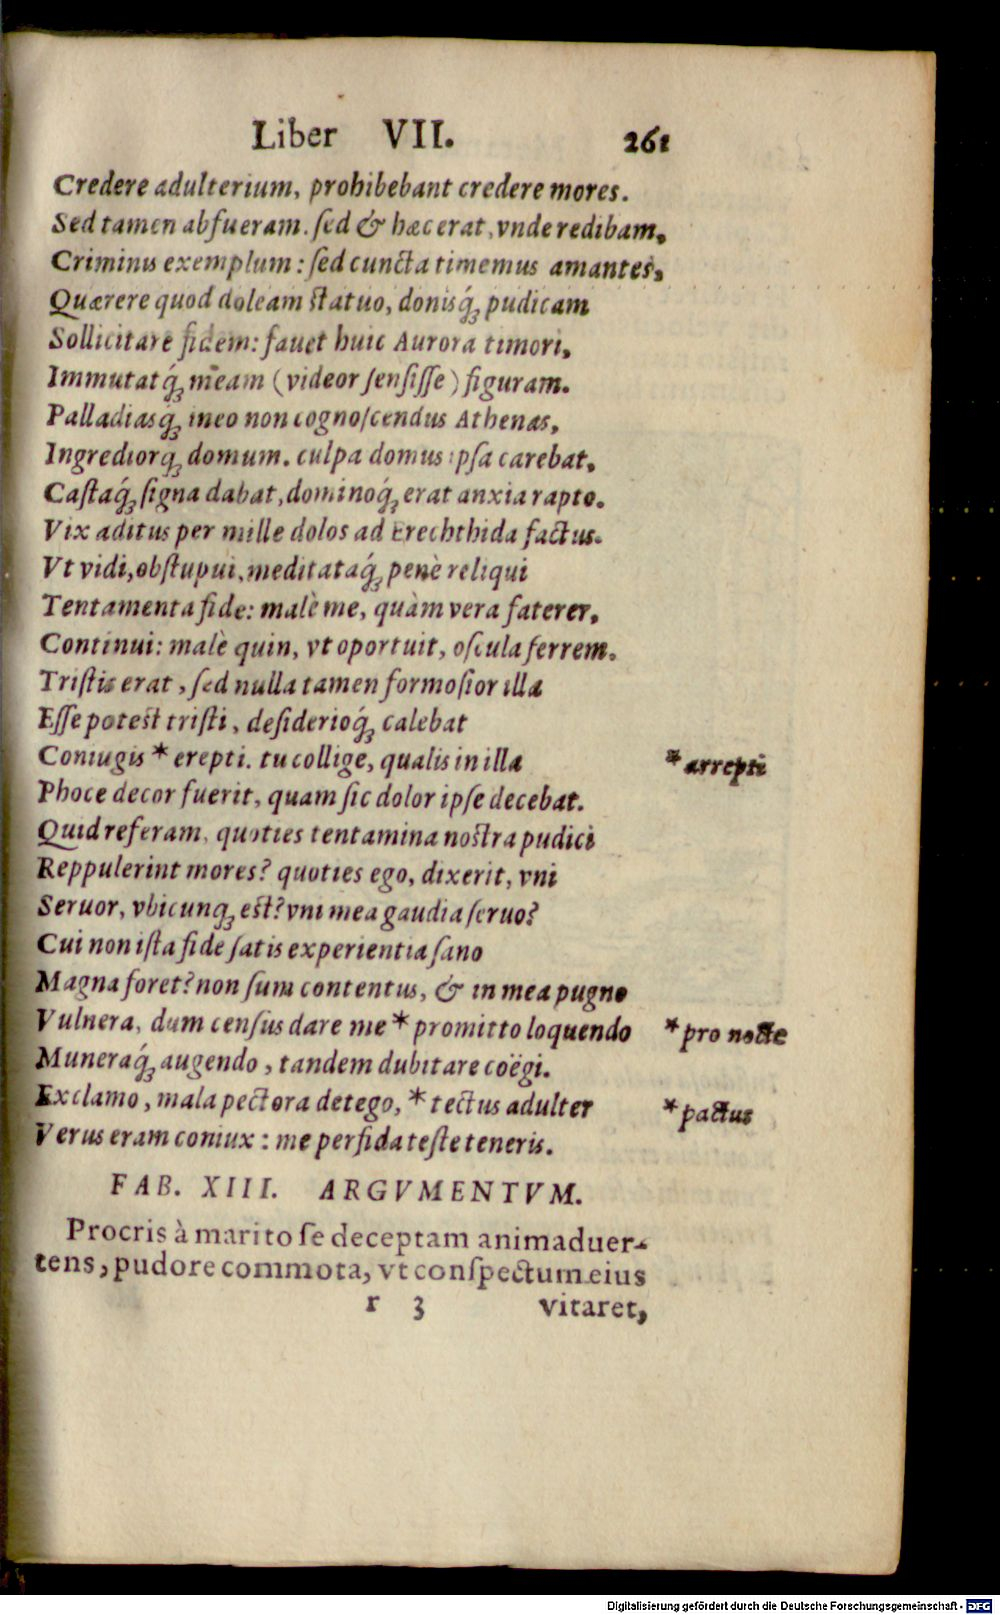 Liber VII. 261
Credere adulterium, prohibebant credere mores.
Sed tamen abfueram. ſed & hæc erat, vnde redibam,
Criminis exemplum: ſed cuncta timemus amantes,
Quærere quod doleam ſtatuo, donisq́ꝫ pudicam
Sollicitare fidem: fauet huic Aurora timori,
Immutatq́ꝫ meam (videor ſenſiſſe) figuram.
Palladiasq́ꝫ ineo non cognoſcendus Athenas,
Ingrediorqꝫ domum. culpa domus ipſa carebat,
Caſtaq́ꝫ ſigna dabat, dominoq́ꝫ erat anxia rapto.
Vix aditus per mille dolos ad Erechthida factus.
Vt vidi, obſtupui, meditataq́ꝫ penè reliqui
Tentamenta fide: malè me, quàm vera faterer,
Continui: malè quin, vt oportuit, oſcula ferrem.
Triſtis erat, ſed nulla tamen formoſior illa
Eſſe poteſt triſti, deſiderioq́ꝫ calebat
Coniugis * erepti. tu collige, qualis in illa
* arrepti
Phoce decor fuerit, quam ſic dolor ipſe decebat.
Quid referam, quoties tentamina noſtra pudici
Reppulerint mores? quoties ego, dixerit, vni
Seruor, vbicunqꝫ eſt? vni mea gaudia ſeruo?
Cui non iſta fide ſatis experientia ſano
Magna foret? non ſum contentus, & in mea pugno
Vulnera, dum cenſus dare me * promitto loquendo
* pro nocte
Muneraq́ꝫ augendo, tandem dubitare coëgi.
Exclamo, mala pectora detego, * tectus adulter
* pactus
Verus eram coniux: me perfida teſte teneris.
FAB. XIII. ARGVMENTVM.
Procris à marito ſe deceptam animaduer-
tens, pudore commota, vt conſpectum eius
r 3 vitaret,
Digitalisierung gefördert durch die Deutsche Forschungsgemeinschaft - DFG